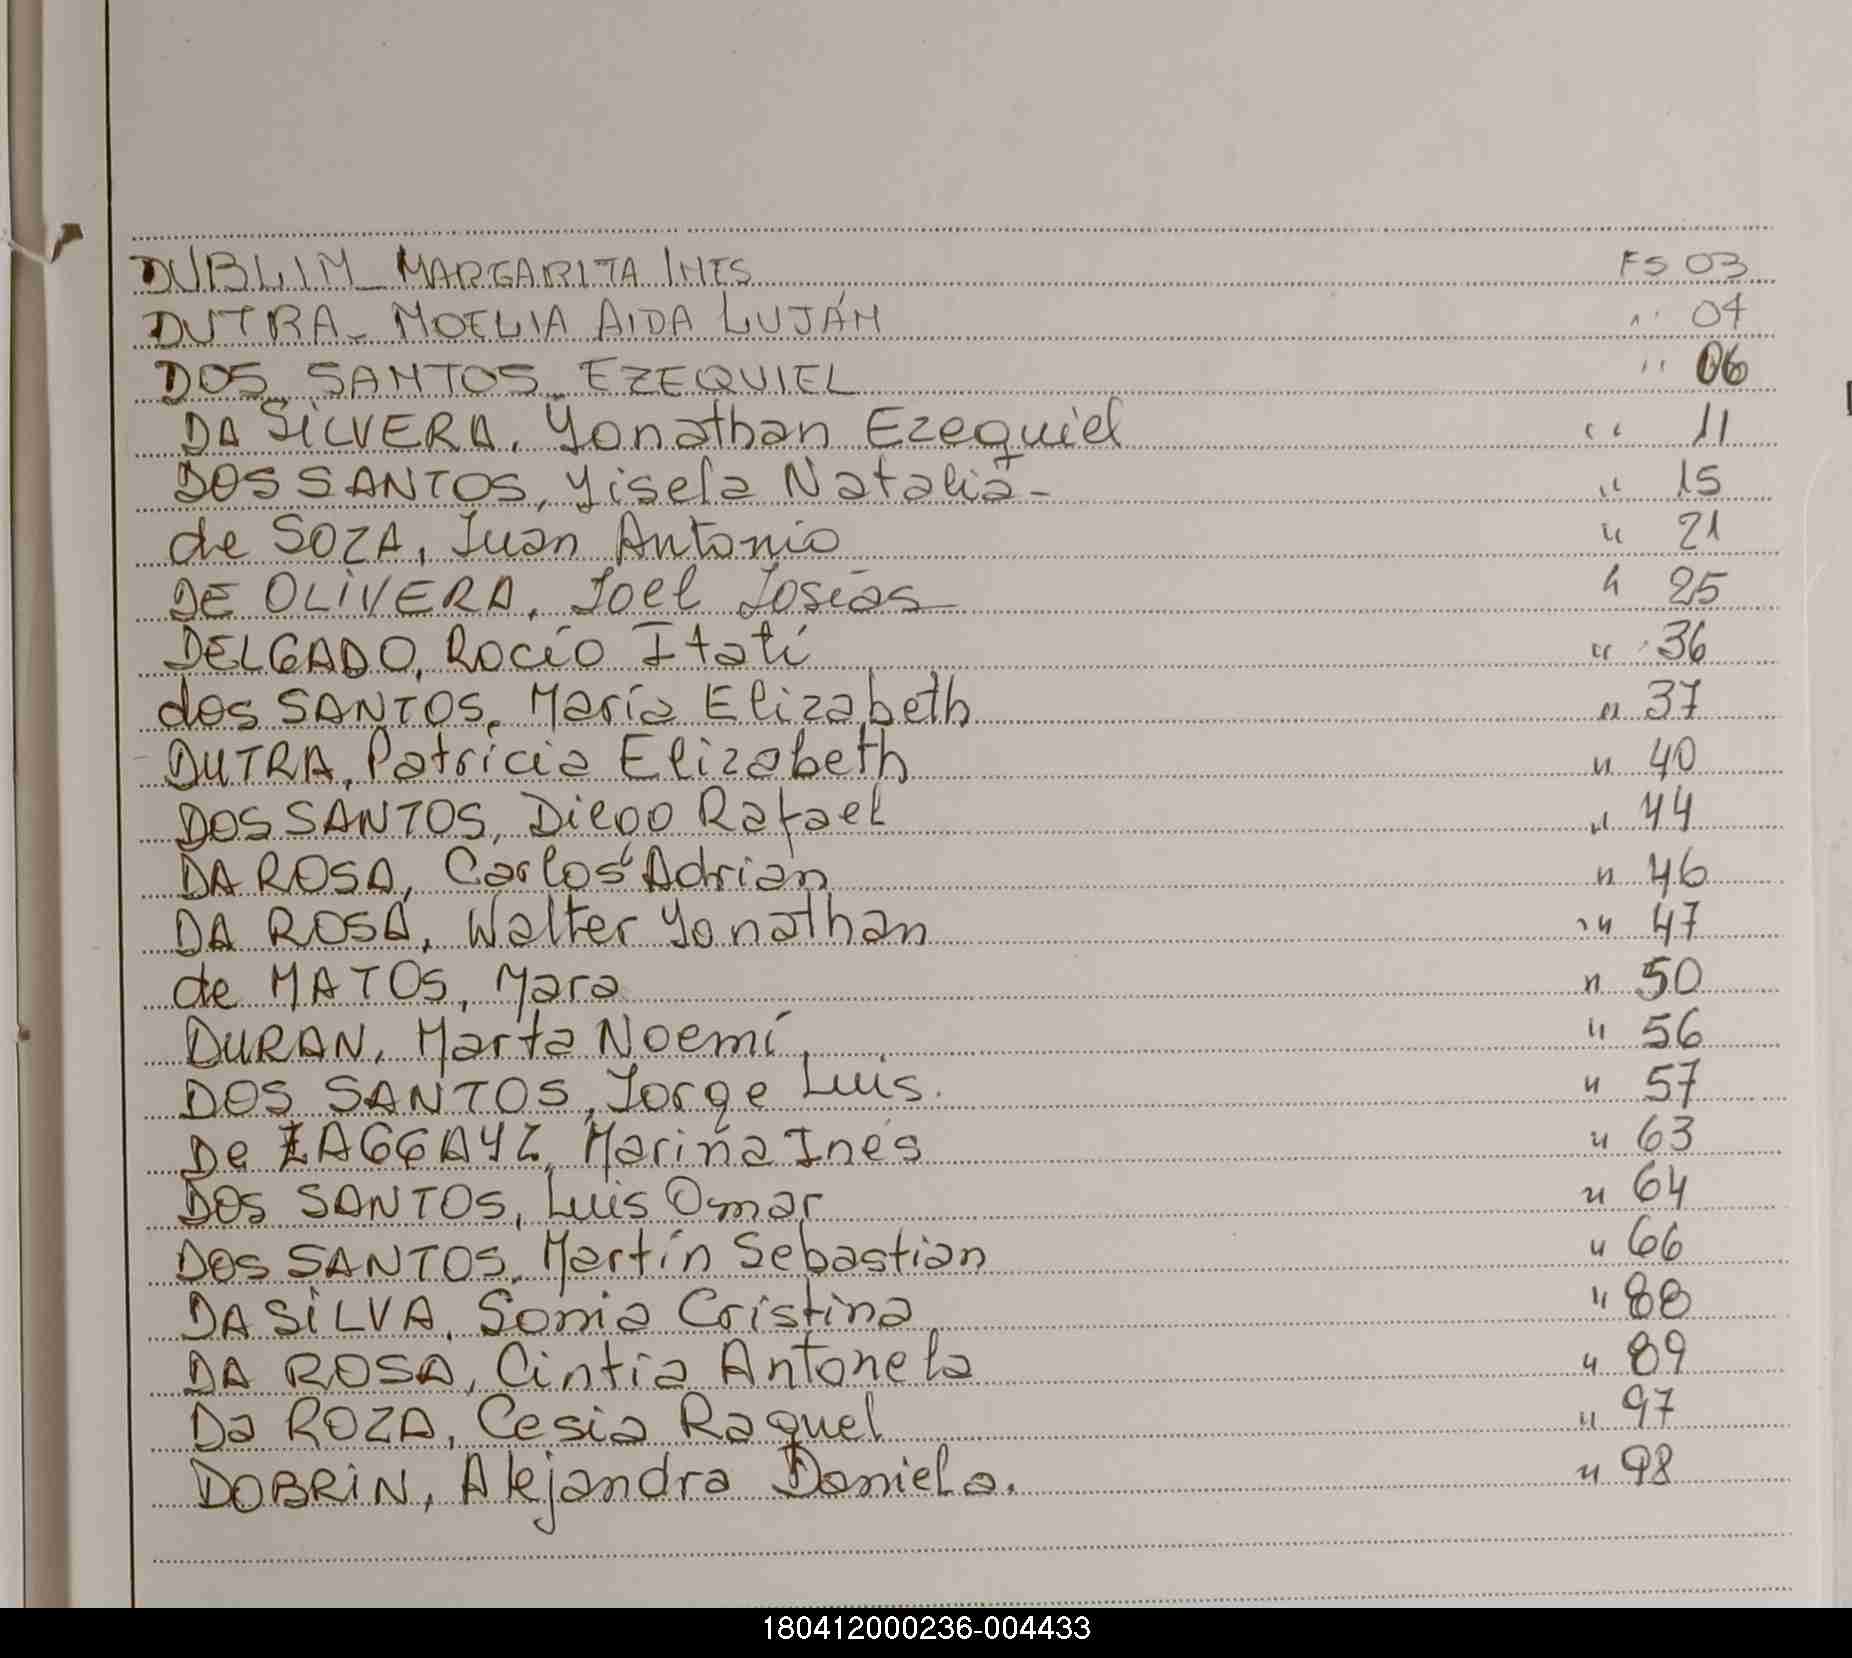 DUBLIN_ MARGARITA INES FS 03
DUTRA_ NOELIA AIDA LUJÁN " 04
DOS SANTOS EZEQUIEL " 06
DA SILVERA, Yonathan Ezequiel " 11
DOS SANTOS, Yisela Natalia- " 15
de SOZA, Juan Antonio " 21
DE OLIVERA, Joel Josías " 25
DELGADO, Rocío Itatí " 36
dos SANTOS, María Elizabeth " 37
DUTRA, Patricia Elizabeth " 40
DOS SANTOS, Diego Rafael " 44
DA ROSA, Carlos Adrian " 46
DA ROSA, Walter Yonathan " 47
de MATOS, Mara " 50
DURAN, Marta Noemí " 56
DOS SANTOS, Jorge Luis. " 57
De Marina Inés " 63
DOS SANTOS, Luis Omar " 64
DOS SANTOS, Martín Sebastian " 66
DA SILVA, Sonia Cristina " 88
DA ROSA, Cintia Antonela " 89
Da ROZA, Cesia Raquel " 97
DOBRIN, Alejandra Daniela. " 98
180412000236-004433